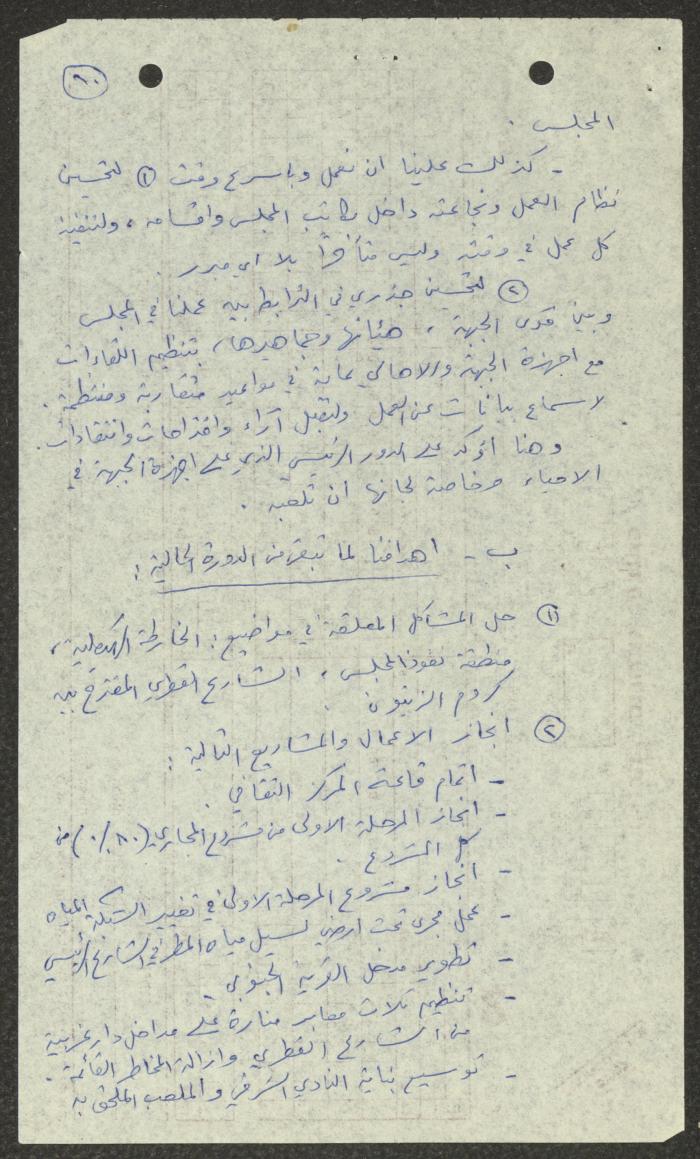 ٩٠
المجلس .
- كذلك علينا ان نعمل وباسرع وقت ① لتحسين
نظام العمل ونجاعته داخل مكاتب المجلس واقسامه ، ولتنفيذ
كل عمل في وقته وليس متأخراً بلا اي مبرر .
② لتحسين جذري في الترابط بين عملنا في المجلس
وبين قوى الجبهة ، هيئاتها وجماهيرها ، بتنظيم اللقاءات
مع اجهزة الجبهة والاهالي عامة في مواعيد متقاربة ومنتظمة .
لاسماع بيانات عن العمل ولتقبل آراء واقتراحات وانتقادات .
وهنا اؤكد على الدور الرئيسي الذي على اجهزة الجبهة في
الاحياء وخاصة لجانها ان تلعبه .
ب - اهدافنا لما تبقى من الدورة الحالية :
① حل المشاكل المعلقة في مواضيع : الخارطة الهيكلية ،
منطقة نفوذ المجلس ، الشارع القطري المقترح بين
كروم الزيتون .
② انجاز الاعمال والمشاريع التالية :
- اتمام قاعة المركز الثقافي .
- انجاز المرحلة الاولى من مشروع المجاري (٨٠٪) من
كل المشروع .
- انجاز مشروع المرحلة الاولى في تغيير شبكة المياه
- عمل مجرى تحت ارضي لسيل مياه المطر في الشارع الرئيسي
- تطوير مدخل القرية الجنوبي .
- تنظيم ثلاث معابر منارة على مداخل دار غربية
من الشارع القطري وازالة المخاطر القائمة .
- توسيع بناية النادي الشرقي والملعب الملحق به